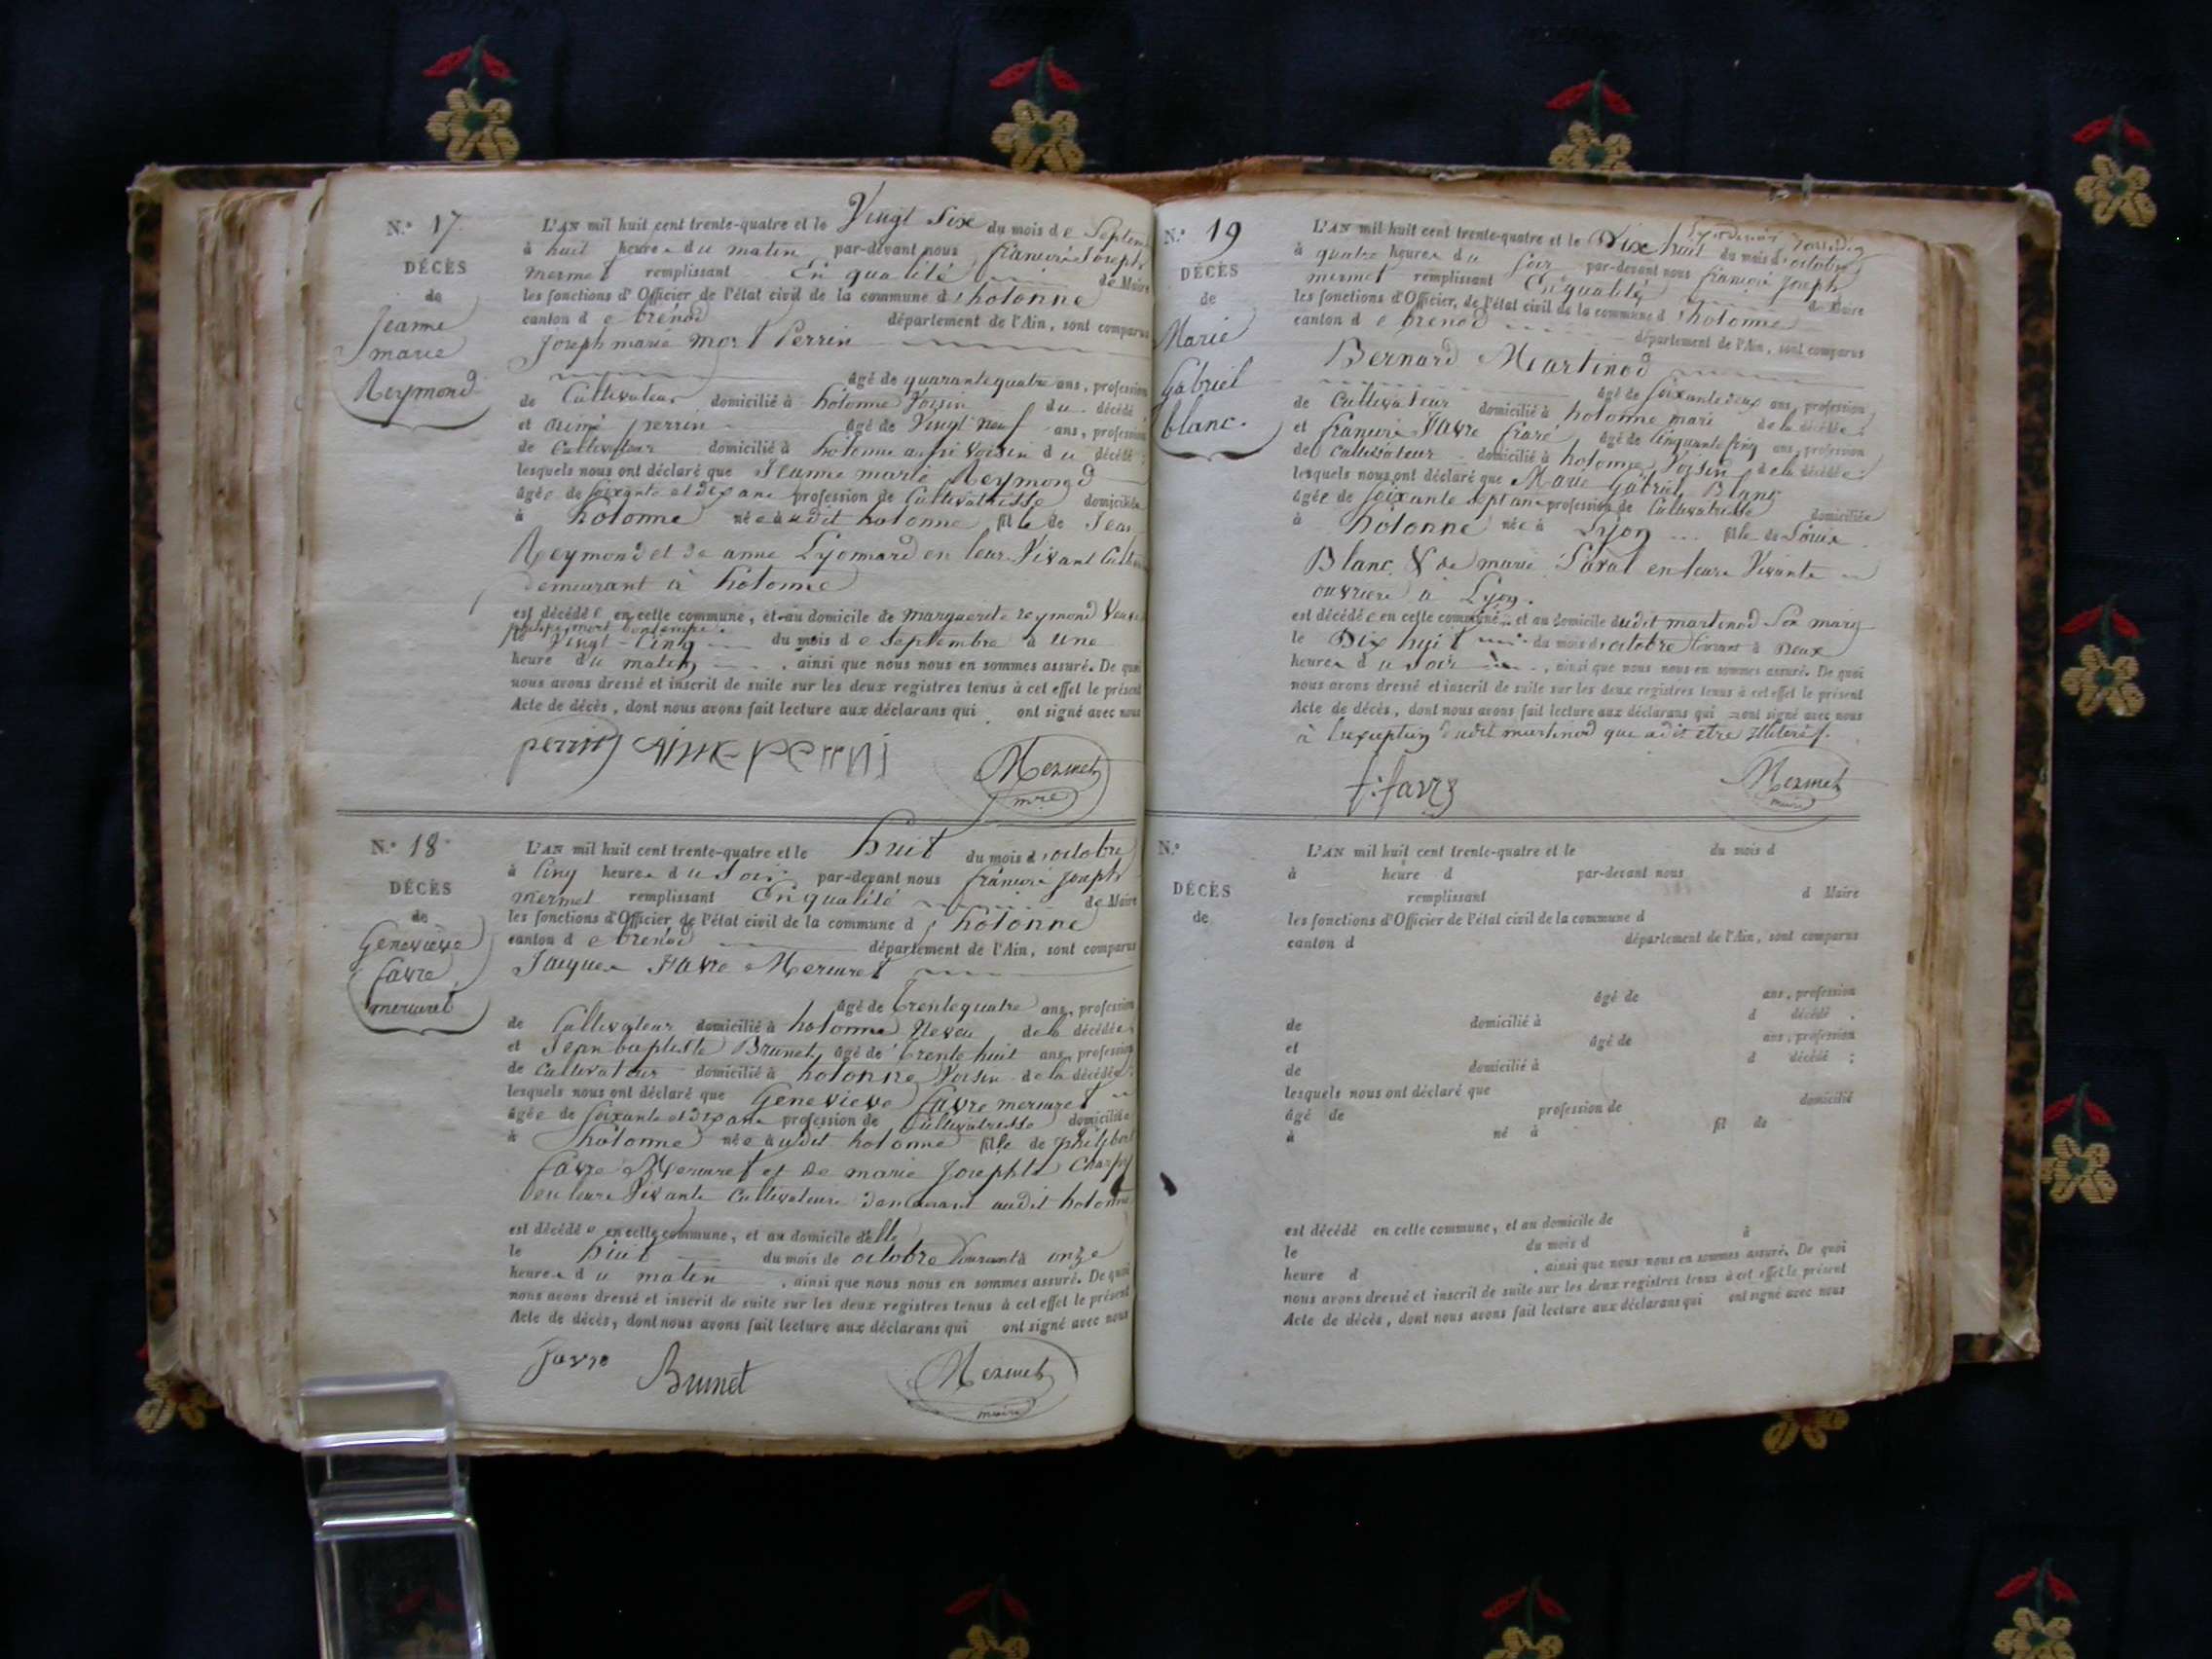 N.° 17
DÉCÈS
de
Jeanne
marie
Reymond
L'AN mil huit cent trente-quatre et le Vingt Six du mois de Septem
à huit heures du matin par-devant nous françois Joseph
mermet remplissant En qualité de Maire
les fonctions d'Officier de l'état civil de la commune d'hotonne
canton de brenod département de l'Ain, sont comparus
Joseph marie Mort Perrin
âgé de quarante quatre ans, profession
de Cultivateur domicilié à hotonne Voisin du décédé
et aimé perrin âgé de Vingt neuf ans, profession
de Cultivateur domicilié à hotonne aussi Voisin du décédé ;
lesquels nous ont déclaré que Jeanne marie Reymond
âgée de soixante et dix ans profession de Cultivatrisse domiciliée
à hotonne née audit hotonne fille de Jean
Reymond et de anne Lyonnard en leur Vivant
demeurant à hotonne
est décédée en cette commune, et au domicile de marguerite reymond Veuve
le Vingt-Cinq du mois de Septembre à une
heure du matin, ainsi que nous nous en sommes assuré. De quoi
nous avons dressé et inscrit de suite sur les deux registres tenus à cet effet le présent
Acte de décès, dont nous avons fait lecture aux déclarans qui ont signé avec nous
perrin aime perrin
Mermet
mre
N.° 18
DÉCÈS
de
Genevieve
favre
mercuret
L'AN mil huit cent trente-quatre et le huit du mois d'octobre
à Cinq heures du Soir par-devant nous françois Joseph
mermet remplissant En qualité de Maire
les fonctions d'Officier de l'état civil de la commune d'hotonne
canton de brenod département de l'Ain, sont comparus
Jacques Favre Mercuret
âgé de trente quatre ans, profession
de Cultivateur domicilié à hotonne Neveu de la décédée
et Jean baptiste Brunet âgé de trente huit ans, profession
de Cultivateur domicilié à hotonne Voisin de la décédée ;
lesquels nous ont déclaré que Genevieve favre mercuret
âgée de soixante et dix ans profession de Cultivatrisse domiciliée
à hotonne née audit hotonne fille de philibert
favre Mercuret et de marie Josephte
en leurs Vivants Cultivateurs demeurant audit hotonne
est décédée en cette commune, et au domicile d'elle
le huit du mois de octobre Courant à onze
heures du matin, ainsi que nous nous en sommes assuré. De quoi
nous avons dressé et inscrit de suite sur les deux registres tenus à cet effet le présent
Acte de décès, dont nous avons fait lecture aux déclarans qui ont signé avec nous
favre Brunet
Mermet
maire
N.° 19
DÉCÈS
de
Marie
Gabriel
blanc.
L'AN mil huit cent trente-quatre et le Dix huit du mois d'octobre
à quatre heures du Soir par-devant nous françois Joseph
mermet remplissant En qualité de Maire
les fonctions d'Officier de l'état civil de la commune d'hotonne
canton de brenod département de l'Ain, sont comparus
Bernard Martinod
âgé de soixante deux ans, profession
de Cultivateur domicilié à hotonne mari de la décédée ;
et françois Favre âgé de Cinquante cinq ans, profession
de Cultivateur domicilié à hotonne Voisin de la décédée
lesquels nous ont déclaré que Marie Gabriel Blanc
âgée de soixante sept ans profession de Cultivatrisse domiciliée
à hotonne née à Lyon fille de Louis
Blanc & de marie en leurs Vivants
ouvriers à Lyon.
est décédée en cette commune, et au domicile dudit martinod Son mary
le Dix huit du mois d'octobre Courant à Deux
heures du Soir, ainsi que nous nous en sommes assuré. De quoi
nous avons dressé et inscrit de suite sur les deux registres tenus à cet effet le présent
Acte de décès, dont nous avons fait lecture aux déclarans qui ont signé avec nous
à l'exception dudit martinod que a dit etre
f. favre
Mermet
maire
N.°
DÉCÈS
de
L'AN mil huit cent trente-quatre et le du mois d
à heure d par-devant nous
remplissant d Maire
les fonctions d'Officier de l'état civil de la commune d
canton d département de l'Ain, sont comparus
âgé de ans, profession
de domicilié à d décédé ;
et âgé de ans, profession
de domicilié à d décédé ;
lesquels nous ont déclaré que
âgé de profession de domicilié
à né à fil de
est décédé en cette commune, et au domicile de
le du mois d à
heure d , ainsi que nous nous en sommes assuré. De quoi
nous avons dressé et inscrit de suite sur les deux registres tenus à cet effet le présent
Acte de décès, dont nous avons fait lecture aux déclarans qui ont signé avec nous